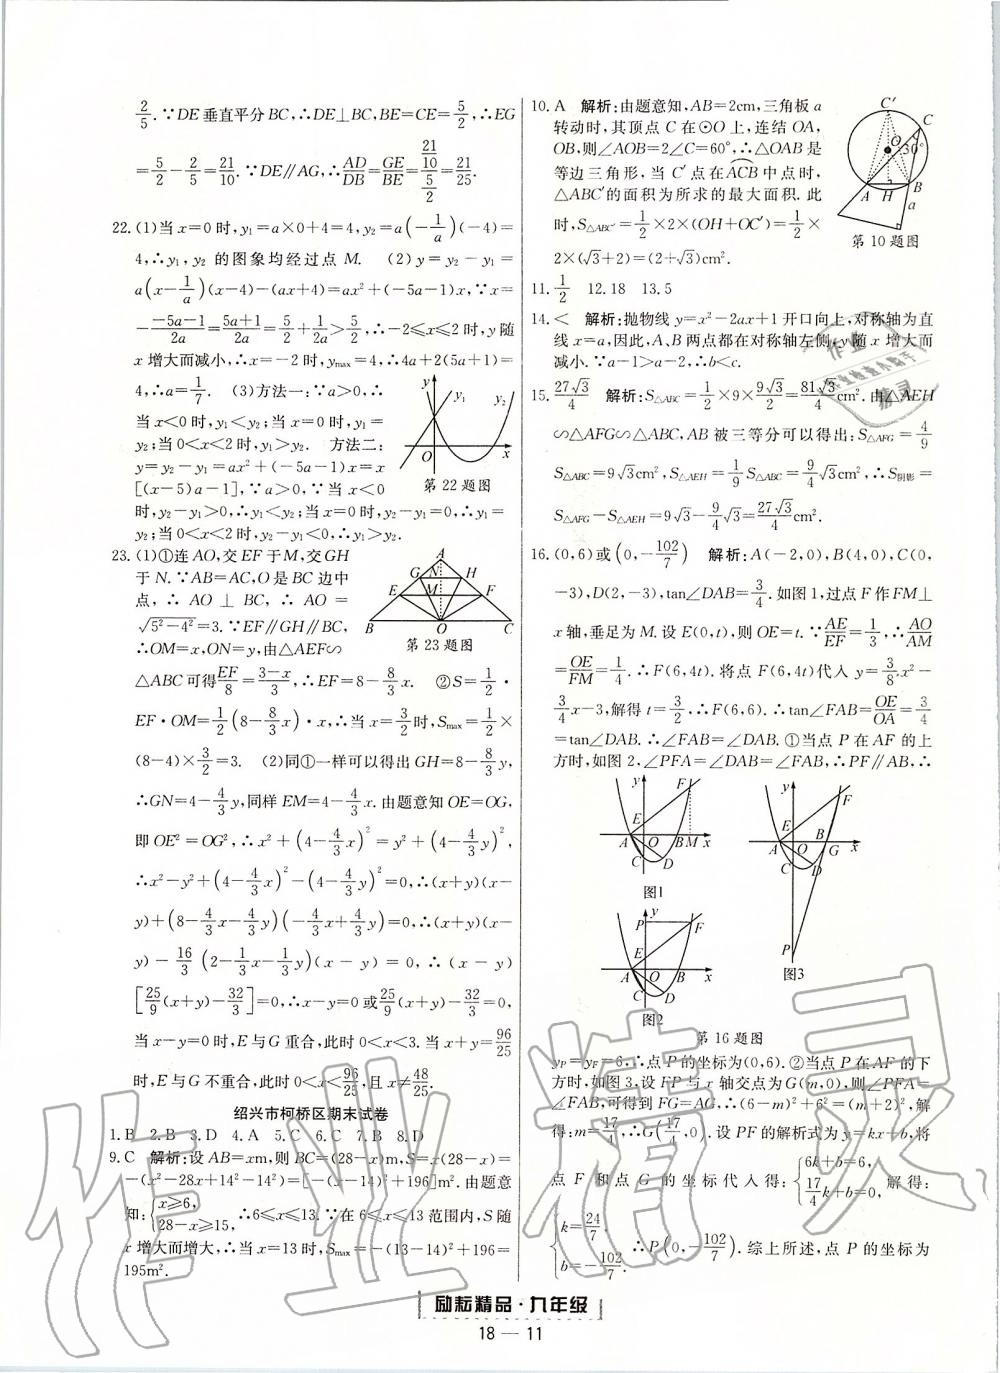 2/5. ∵DE垂直平分BC,∴DE⊥BC,BE=CE=5/2,∴EG
=5/2-2/5=21/10. ∵DE∥AG,∴AD/DB=GE/BE=(21/10)/(5/2)=21/25.
22. (1)当x=0时,y₁=a×0+4=4,y₂=a(-1/a)(-4)=
4,∴y₁,y₂的图象均经过点M. (2)y=y₂-y₁=
a(x-1/a)(x-4)-(ax+4)=ax²+(-5a-1)x,∵x=
-(-5a-1)/2a=(5a+1)/2a=5/2+1/2a>5/2,∴-2≤x≤2时,y随
x增大而减小,∴x=-2时,y_max=4,∴4a+2(5a+1)=
4,∴a=1/7. (3)方法一:∵a>0,∴
当x<0时,y₁<y₂;当x=0时,y₁=
y₂;当0<x<2时,y₁>y₂. 方法二:
y=y₂-y₁=ax²+(-5a-1)x=x
[(x-5)a-1],∵a>0,∴当x<0
时,y₂-y₁>0,∴y₁<y₂;当x=0时,y₂-y₁=0,∴y₁=
y₂;当0<x<2时,y₂-y₁<0,∴y₂<y₁.
y
y₁
y₂
O
x
第22题图
23. (1)①连AO,交EF于M,交GH
于N.∵AB=AC,O是BC边中
点,∴AO⊥BC,∴AO=
√(5²-4²)=3.∵EF∥GH∥BC,
∴OM=x,ON=y,由△AEF∽
△ABC可得EF/8=(3-x)/3,∴EF=8-8/3x. ②S=1/2·
EF·OM=1/2(8-8/3x)·x,∴当x=3/2时,S_max=1/2×
(8-4)×3/2=3. (2)同①一样可以得出GH=8-8/3y,
∴GN=4-4/3y,同样EM=4-4/3x.由题意知OE=OG,
即OE²=OG²,∴x²+(4-4/3x)²=y²+(4-4/3y)²,
∴x²-y²+(4-4/3x)²-(4-4/3y)²=0,∴(x+y)(x-
y)+(8-4/3x-4/3y)(-4/3x+4/3y)=0,∴(x+y)(x-
y)-16/3(2-1/3x-1/3y)(x-y)=0,∴(x-y)
[25/9(x+y)-32/3]=0,∴x-y=0或25/9(x+y)-32/3=0,
当x-y=0时,E与G重合,此时0<x<3.当x+y=96/25
时,E与G不重合,此时0<x<96/25,且x≠48/25.
A
G N H
E M F
B O C
第23题图
绍兴市柯桥区期末试卷
1.B 2.B 3.D 4.A 5.C 6.C 7.B 8.D
9.C 解析:设AB=xm,则BC=(28-x)m,S=x(28-x)=
-(x²-28x+14²-14²)=[-(x-14)²+196]m².由题意
知:{x≥6, 28-x≥15, ∴6≤x≤13.∵在6≤x≤13范围内,S随
x增大而增大,∴当x=13时,S_max=-(13-14)²+196=
195m².
10. A 解析:由题意知,AB=2cm,三角板a
转动时,其顶点C在⊙O上,连结OA,
OB,则∠AOB=2∠C=60°,∴△OAB是
等边三角形,当C′点在ACB中点时,
△ABC′的面积为所求的最大面积.此
时,S△ABC′=1/2×2×(OH+OC′)=1/2×
2×(√3+2)=(2+√3)cm².
C′
C
O
30°
A H B
a
第10题图
11. 1/2 12.18 13.5
14.< 解析:抛物线y=x²-2ax+1开口向上,对称轴为直
线x=a,因此,A、B两点都在对称轴左侧,y随x增大而
减小.∵a-1>a-2,∴b<c.
15. 27√3/4 解析:S△ABC=1/2×9×9√3/2=81√3/4cm².由△AEH
∽△AFG∽△ABC,AB被三等分可以得出:S△AFG=4/9
S△ABC=9√3cm²,S△AEH=1/9S△ABC=9/4√3cm²,∴S阴影=
S△AFG-S△AEH=9√3-9/4√3=27√3/4cm².
16. (0,6)或(0,-102/7) 解析:A(-2,0),B(4,0),C(0,
-3),D(2,-3),tan∠DAB=3/4.如图1,过点F作FM⊥
x轴,垂足为M.设E(0,t),则OE=t.∵AE/EF=1/3,∴AO/AM
=OE/FM=1/4.∴F(6,4t).将点F(6,4t)代入y=3/8x²-
3/4x-3,解得t=3/2,∴F(6,6).∴tan∠FAB=OE/OA=3/4
=tan∠DAB.∴∠FAB=∠DAB.①当点P在AF的上
方时,如图2,∠PFA=∠DAB=∠FAB,∴PF∥AB,∴
y F E A O B M x C D
图1
y F E A O B G x C D P
图3
y P F E A O B x C D
图2
第16题图
y_P=y_F=6,∴点P的坐标为(0,6).②当点P在AF的下
方时,如图3,设FP与x轴交点为G(m,0),则∠PFA=
∠FAB,可得到FG=AG,∴(6-m)²+6²=(m+2)²,解
得:m=17/4,∴G(17/4,0).设PF的解析式为y=kx+b,将
点F和点G的坐标代入得:{6k+b=6, 17/4k+b=0, 解得:
{k=24/7, b=-102/7. ∴P(0,-102/7).综上所述,点P的坐标为
励耘精品·九年级
18—11
作业精灵